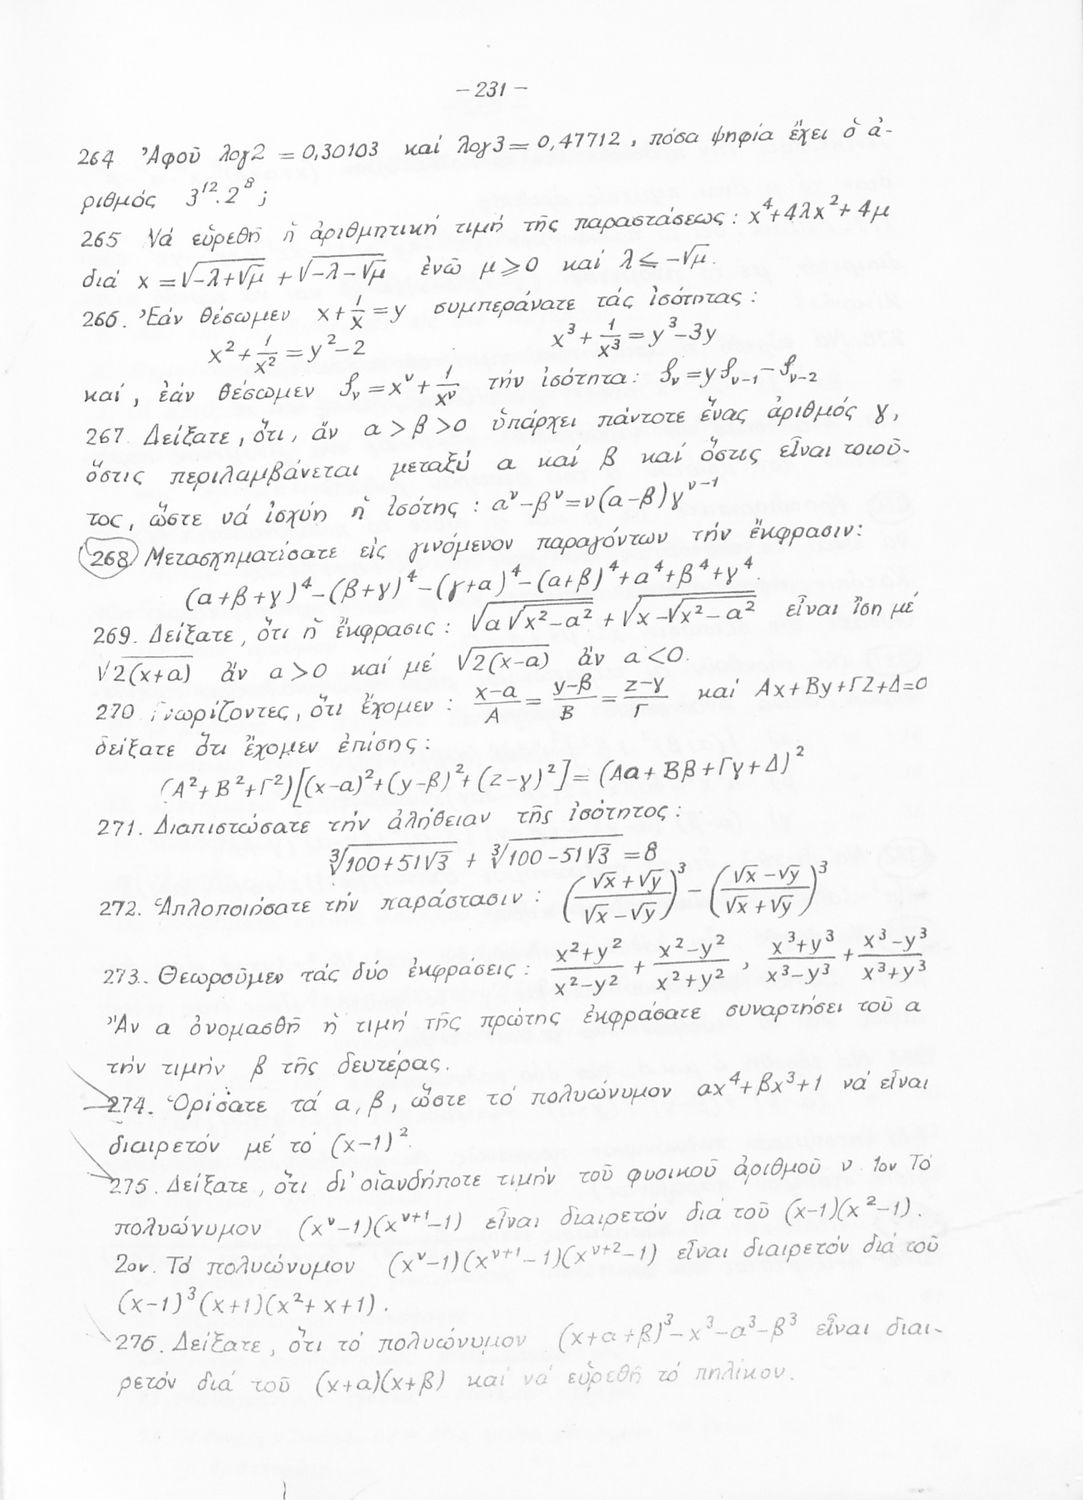 – 231 –
264 Ἀφοῦ λογ2 = 0,30103 καί λογ3 = 0,47712 , πόσα ψηφία ἔχει ὁ ἀ-
ριθμός 3^12 . 2^8 ;
265 Νά εὑρεθῇ ἡ ἀριθμητική τιμή τῆς παραστάσεως : x^4 + 4λx^2 + 4μ
διά x = √(-λ+√μ) + √(-λ-√μ) ἐνῶ μ ⩾ 0 καί λ ⩽ -√μ.
266. Ἐάν θέσωμεν x + 1/x = y συμπεράνατε τάς ἰσότητας :
x^2 + 1/x^2 = y^2 – 2 x^3 + 1/x^3 = y^3 – 3y
καί , ἐάν θέσωμεν S_ν = x^ν + 1/x^ν τήν ἰσότητα : S_ν = y S_ν-1 – S_ν-2
267. Δείξατε, ὅτι, ἄν α > β > 0 ὑπάρχει πάντοτε ἕνας ἀριθμός γ,
ὅστις περιλαμβάνεται μεταξύ α καί β καί ὅστις εἶναι τοιοῦ-
τος, ὥστε νά ἰσχύῃ ἡ ἰσότης : α^ν – β^ν = ν(α-β)γ^ν-1
268 Μετασχηματίσατε εἰς γινόμενον παραγόντων τήν ἔκφρασιν:
(α+β+γ)^4 – (β+γ)^4 – (γ+α)^4 – (α+β)^4 + α^4 + β^4 + γ^4.
269. Δείξατε, ὅτι ἡ ἔκφρασις : √(α√(x^2-α^2)) + √(x-√(x^2-α^2)) εἶναι ἴση μέ
√(2(x+α)) ἄν α > 0 καί μέ √(2(x-α)) ἄν α < 0.
270 Γνωρίζοντες, ὅτι ἔχομεν : (x-α)/Α = (y-β)/Β = (z-γ)/Γ καί Αx + Βy + Γz + Δ = 0
δείξατε ὅτι ἔχομεν ἐπίσης :
(Α^2 + Β^2 + Γ^2)[(x-α)^2 + (y-β)^2 + (z-γ)^2] = (Αα + Ββ + Γγ + Δ)^2
271. Διαπιστώσατε τήν ἀλήθειαν τῆς ἰσότητος :
∛(100+51√3) + ∛(100-51√3) = 8
272. Ἁπλοποιήσατε τήν παράστασιν : ((√x+√y)/(√x-√y))^3 – ((√x-√y)/(√x+√y))^3
273. Θεωροῦμεν τάς δύο ἐκφράσεις : (x^2+y^2)/(x^2-y^2) + (x^2-y^2)/(x^2+y^2) , (x^3+y^3)/(x^3-y^3) + (x^3-y^3)/(x^3+y^3)
Ἄν α ὀνομασθῇ ἡ τιμή τῆς πρώτης ἐκφράσατε συναρτήσει τοῦ α
τήν τιμήν β τῆς δευτέρας.
274. Ὁρίσατε τά α, β, ὥστε τό πολυώνυμον αx^4 + βx^3 + 1 νά εἶναι
διαιρετόν μέ τό (x-1)^2.
275. Δείξατε, ὅτι δι' οἱανδήποτε τιμήν τοῦ φυσικοῦ ἀριθμοῦ ν 1ον Τό
πολυώνυμον (x^ν-1)(x^ν+1-1) εἶναι διαιρετόν διά τοῦ (x-1)(x^2-1).
2ον. Τό πολυώνυμον (x^ν-1)(x^ν+1-1)(x^ν+2-1) εἶναι διαιρετόν διά τοῦ
(x-1)^3(x+1)(x^2+x+1).
276. Δείξατε, ὅτι τό πολυώνυμον (x+α+β)^3 – x^3 – α^3 – β^3 εἶναι διαι-
ρετόν διά τοῦ (x+α)(x+β) καί νά εὑρεθῇ τό πηλίκον.